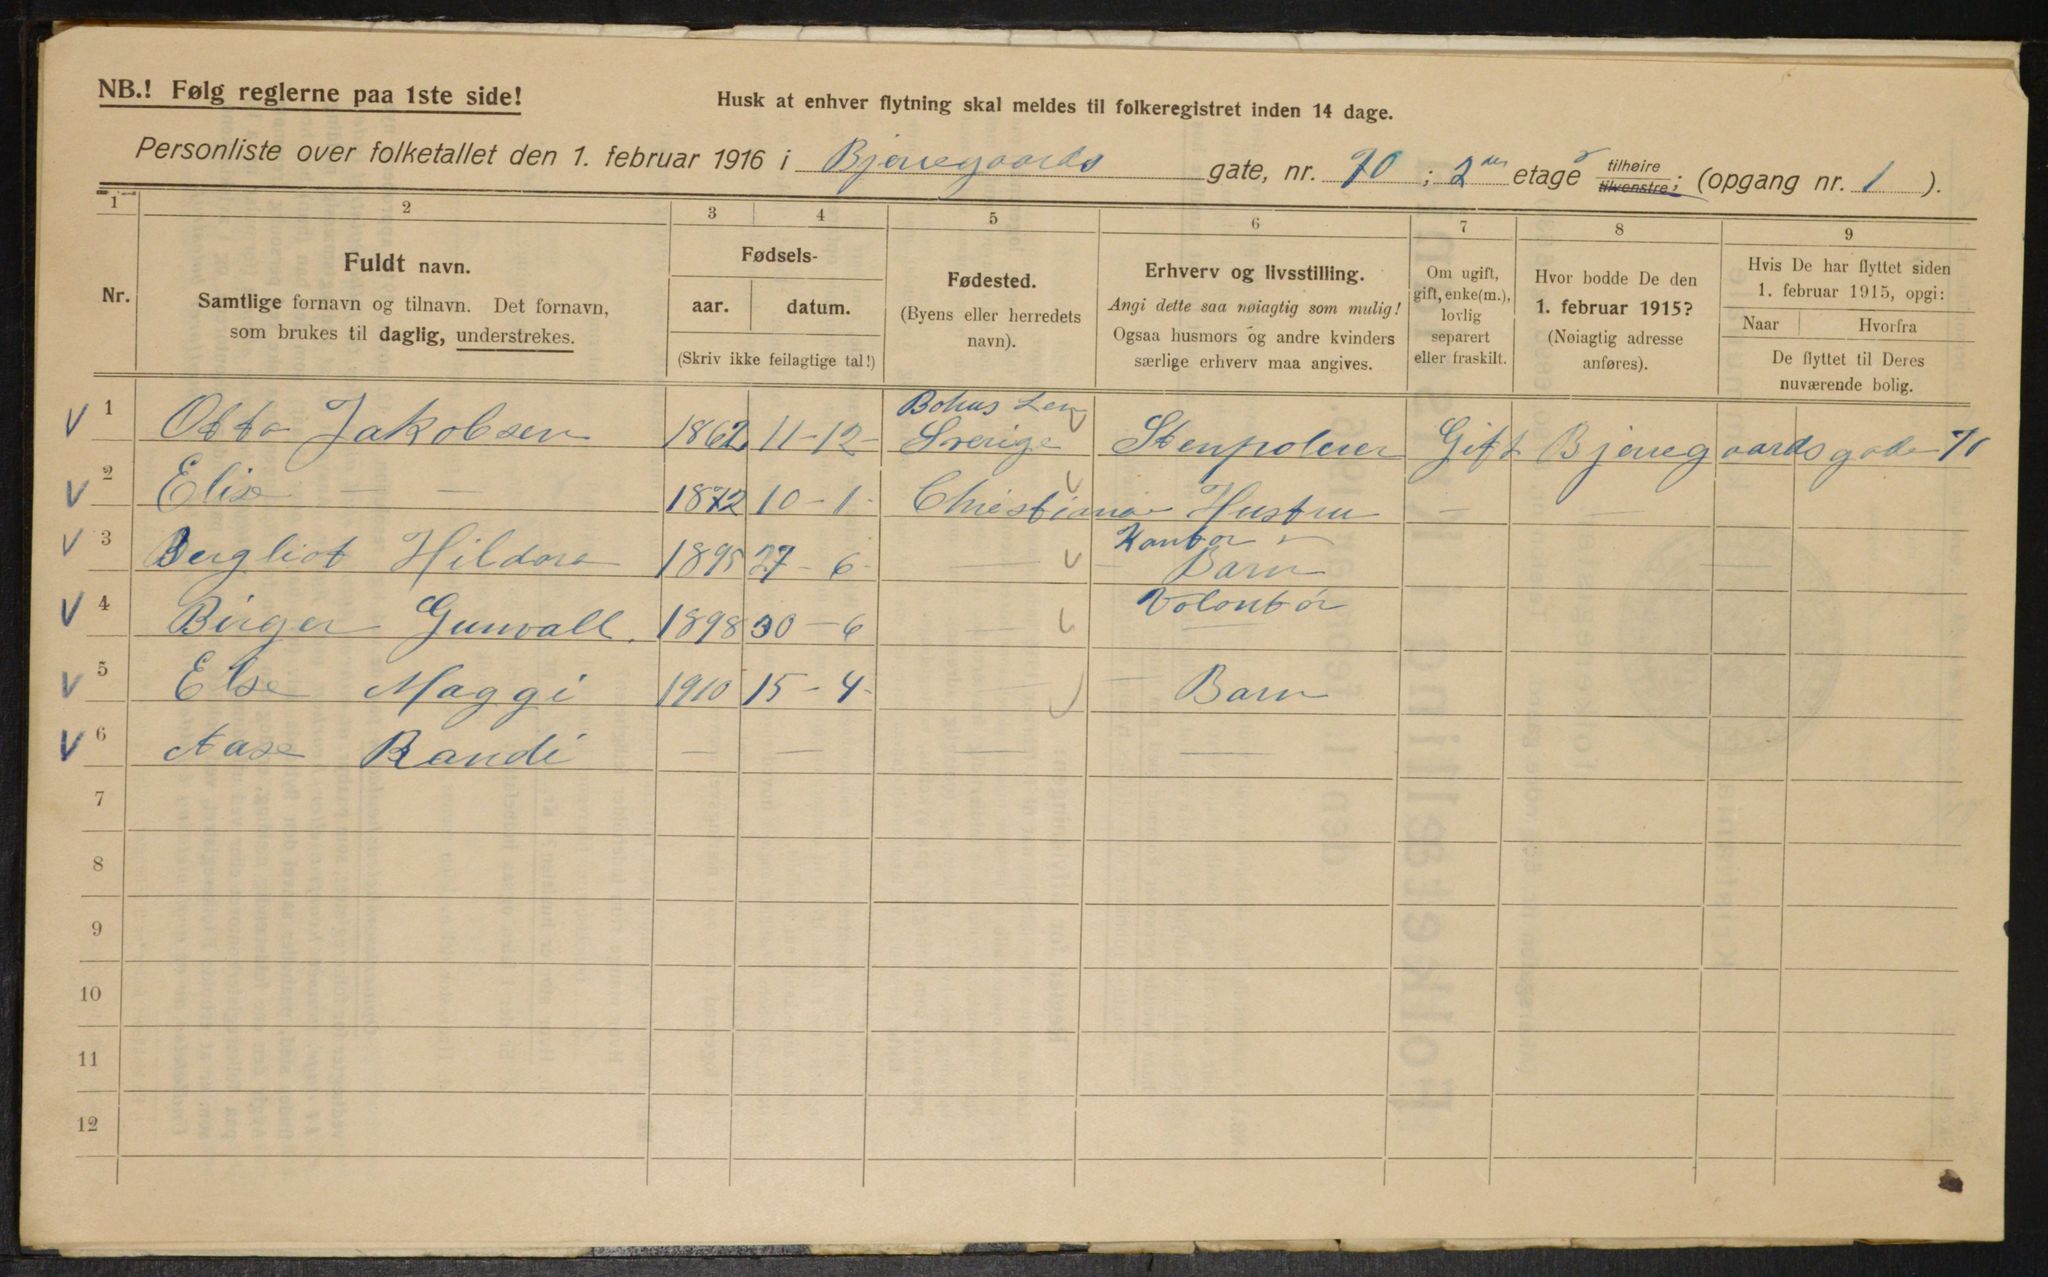 NB.! Følg reglerne paa 1ste side!
Husk at enhver flytning skal meldes til folkeregistret inden 14 dage.
Personliste over folketallet den 1. februar 1916 i Bjerregaards gate, nr. 70 ; 2den etage tilhøire tilvenstre; (opgang nr. 1 ).
1 2 3 4 5 6 7 8 9
Nr.
Fuldt navn.
Samtlige fornavn og tilnavn. Det fornavn,
som brukes til daglig, understrekes.
Fødsels-
aar. datum.
(Skriv ikke feilagtige tal!)
Fødested.
(Byens eller herredets
navn).
Erhverv og livsstilling.
Angi dette saa nøiagtig som mulig!
Ogsaa husmors og andre kvinders
særlige erhverv maa angives.
Om ugift,
gift, enke(m.),
lovlig
separert
eller fraskilt.
Hvor bodde De den
1. februar 1915?
(Nøiagtig adresse
anføres).
Hvis De har flyttet siden
1. februar 1915, opgi:
Naar Hvorfra
De flyttet til Deres
nuværende bolig.
Bohus Len
V 1 Otto Jakobsen 1862 11-12- Sverige Stenpolerer Gift Bjerregaardsgade 70
V 2 Elise — — 1872 10-1- Christiania Hustru — —
Kontor
V 3 Bergliot Hildora 1895 27-6- — Barn
V 4 Birger Gunvall. 1898 30-6 — Volontør —
V 5 Else Maggi 1910 15-4- — Barn
V 6 Aase Randi — — — —
7
8
9
10
11
12